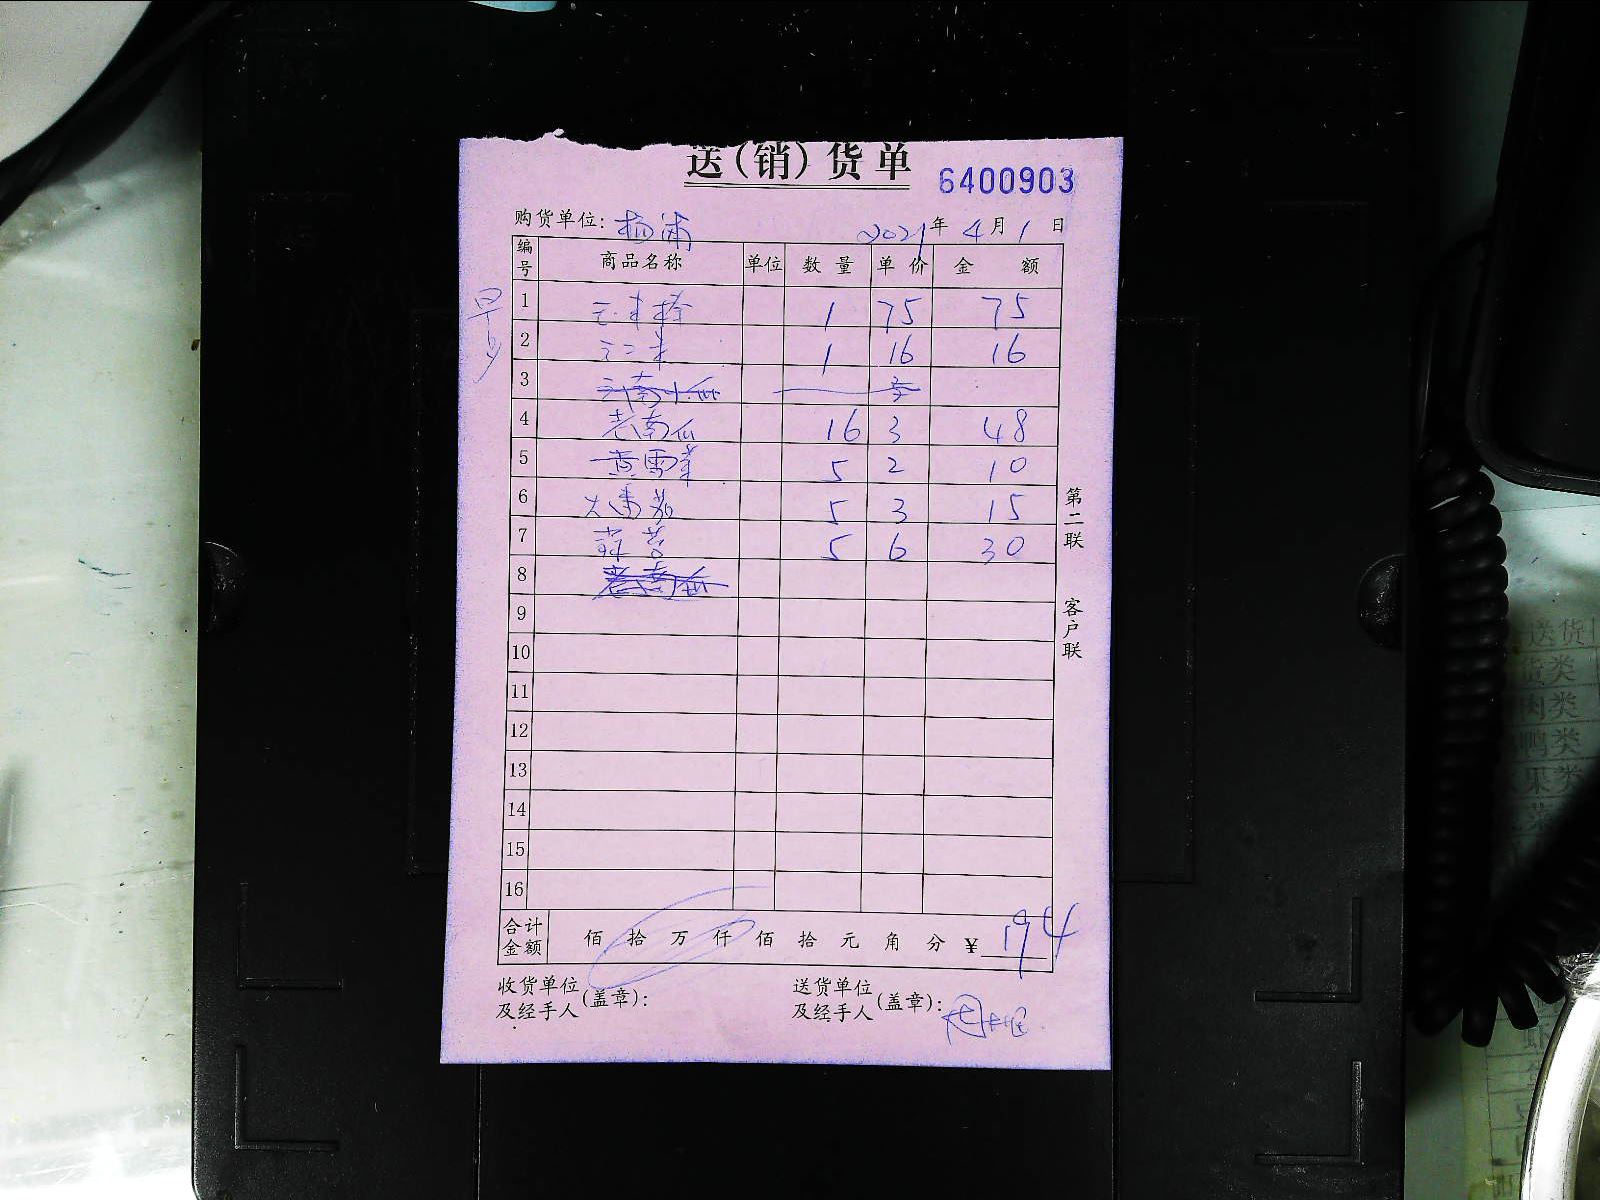 送(销)货单
6400903
购货单位: 杨浦 2021年4月1日
编号 商品名称 单位 数量 单价 金额
1 1 75 75
2 1 16 16
3
4 老南瓜 16 3 48
5 黄雪菜 5 2 10
6 大番茄 5 3 15
7 蒜苔 5 6 30
8 老南瓜
9
10
11
12
13
14
15
16
合计金额 佰 拾 万 仟 佰 拾 元 角 分 ¥194
收货单位及经手人(盖章): 送货单位及经手人(盖章):
第二联 客户联
送货
货类
肉类
鸭类
果类